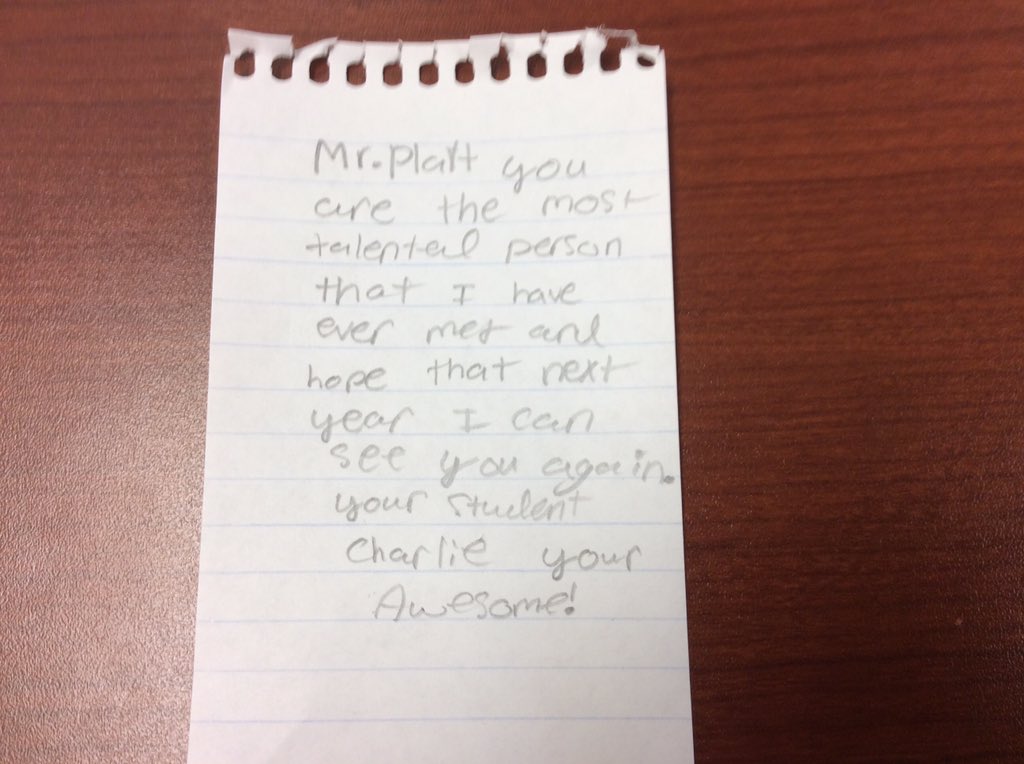 Mr. Platt you
are the most
talented person
that I have
ever met and
hope that next
year I can
see you again.
your student
Charlie your
Awesome!